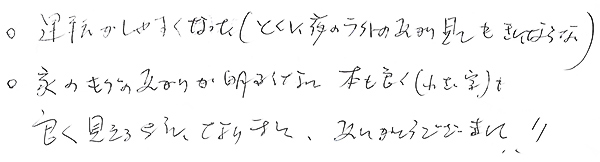 ○ 運転がしやすくなった(とくに夜のライトの灯り見ても きにならない)
○ 家のあかりが明るくなり 本も良く(小さな字)も
良く見えるようになりました、ありがとうございました!!